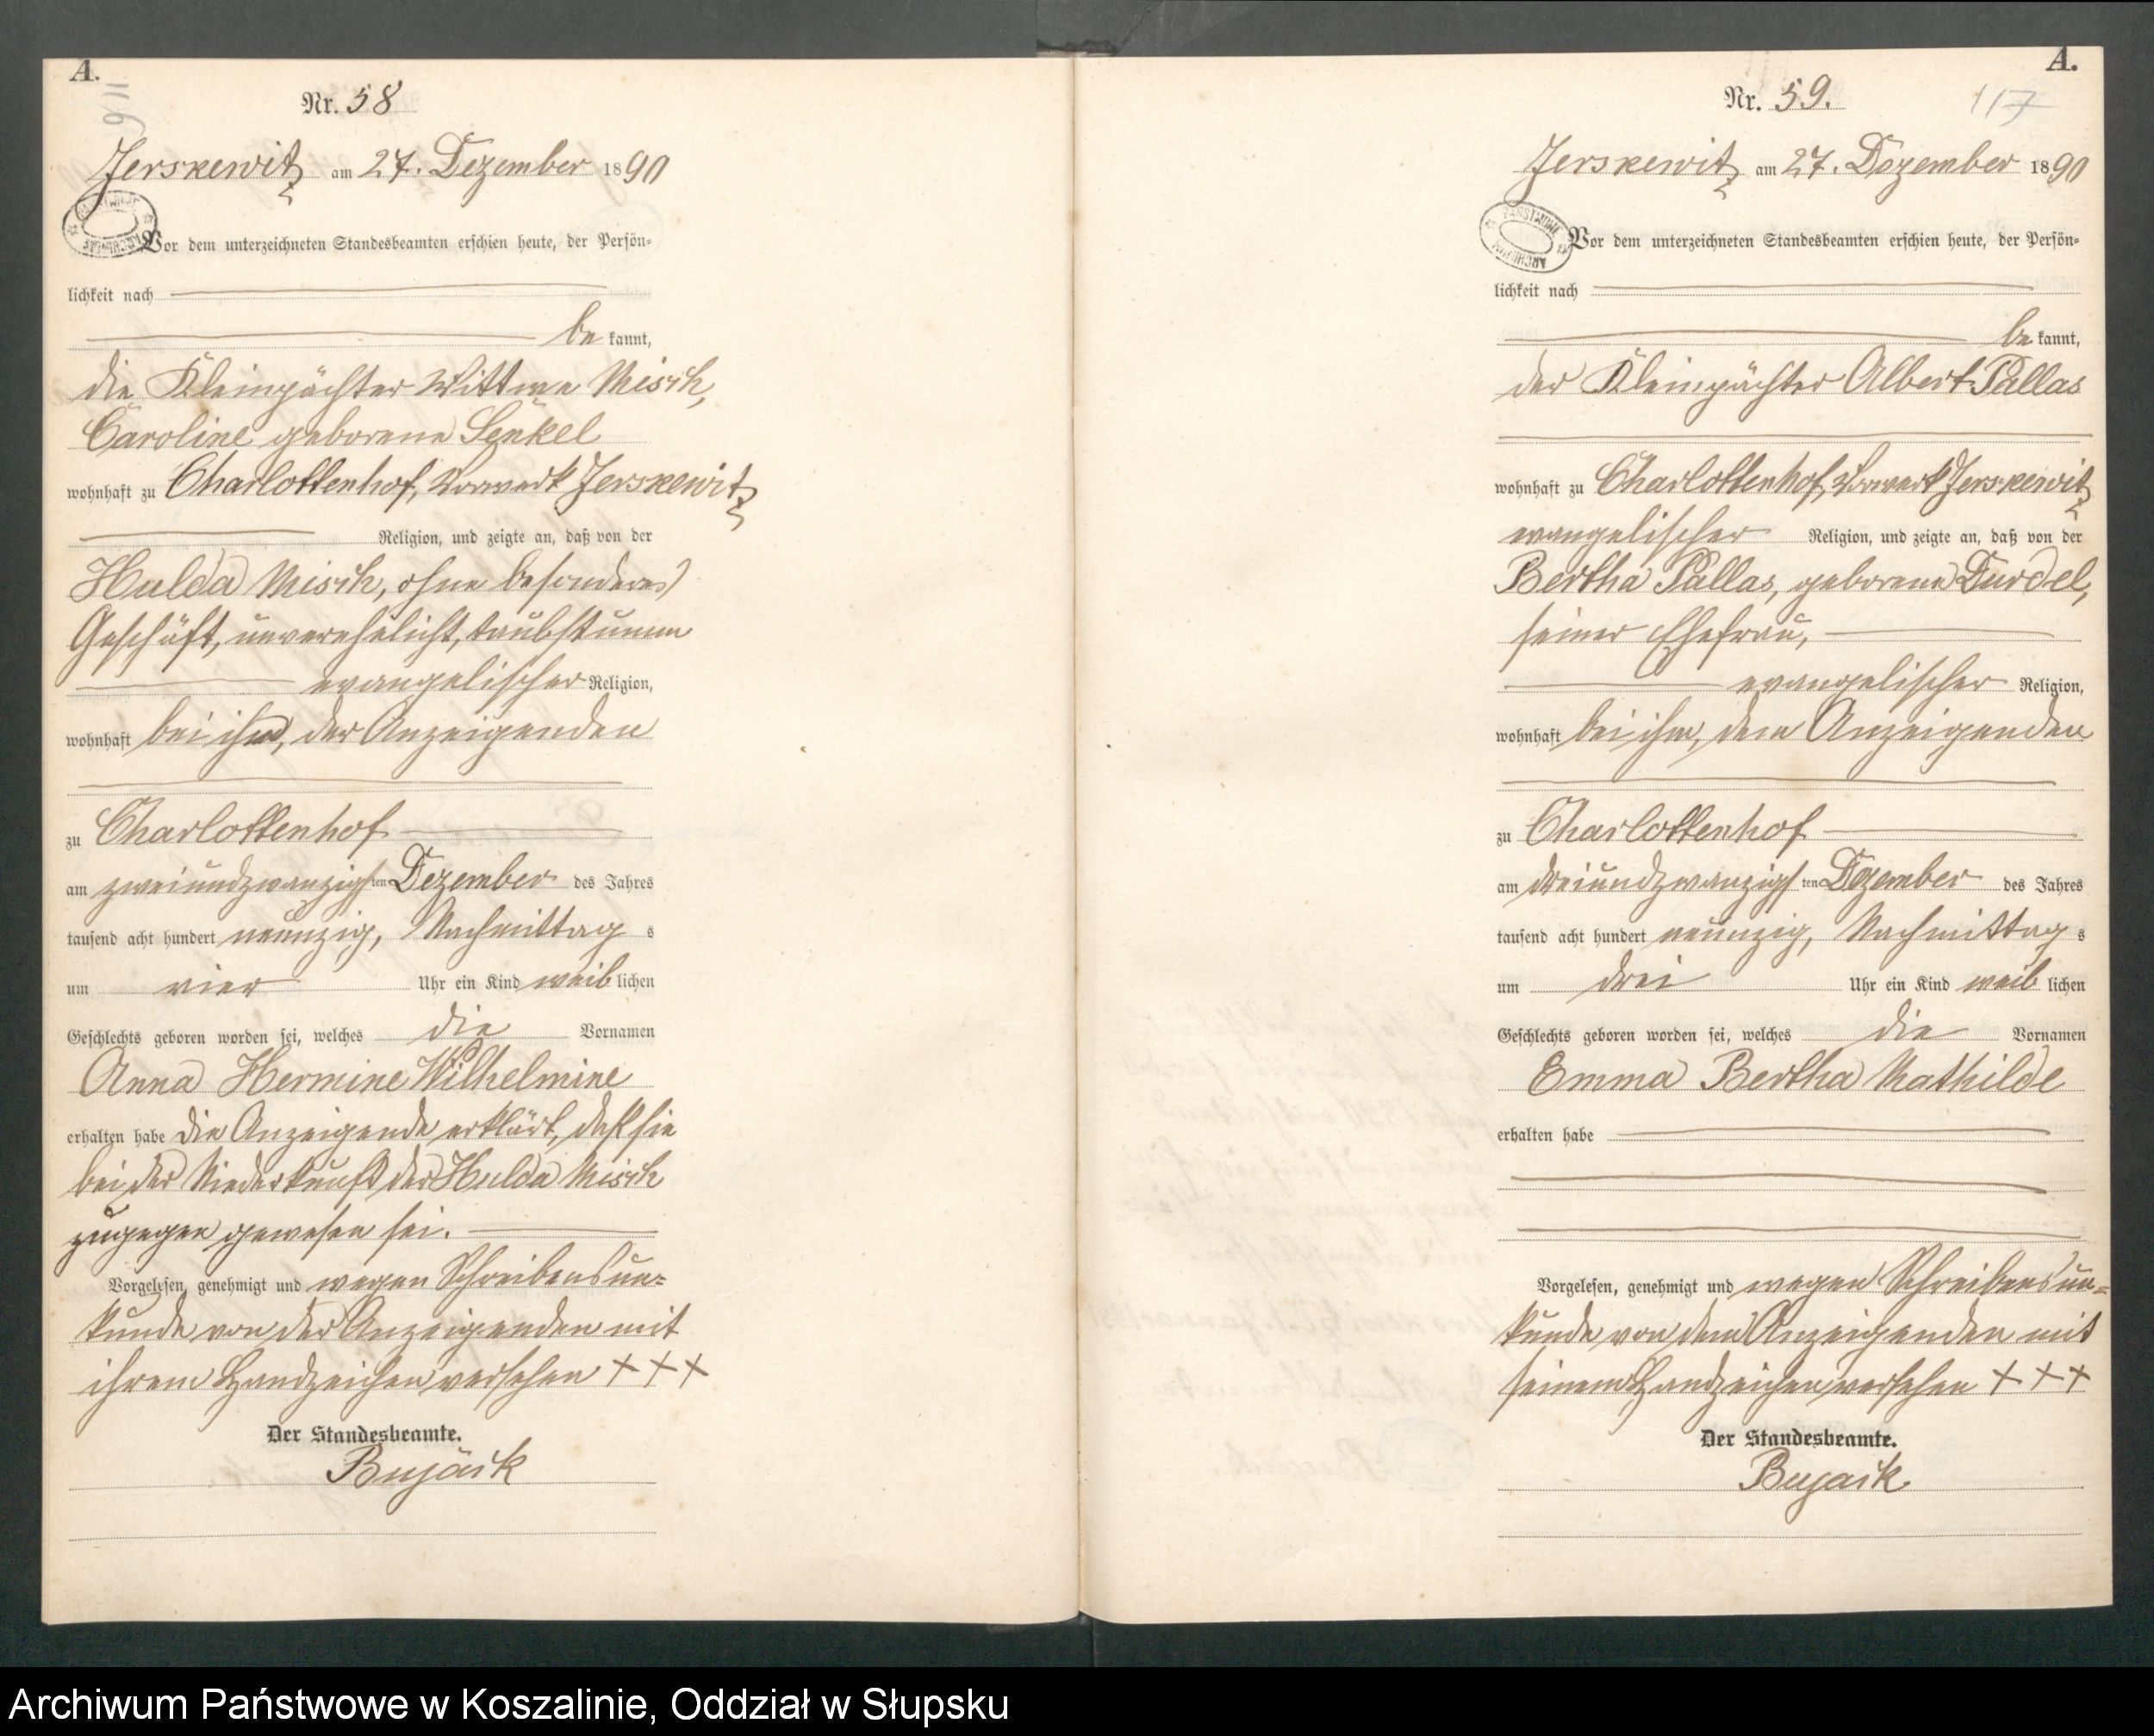 A.
116
Nr. 58
Jerskewitz am 27. Dezember 1890
Vor dem unterzeichneten Standesbeamten erschien heute, der Persön-
lichkeit nach
be kannt,
die Kleinpächter Wittwe Misch,
Caroline geborene Senkel
wohnhaft zu Charlottenhof, Vorwerk Jerskewitz
Religion, und zeigte an, daß von der
Hulda Misch, ohne besonderes
Geschäft, unverehelicht, taubstumm
evangelischer Religion,
wohnhaft bei ihr, der Anzeigenden
zu Charlottenhof
am zweiundzwanzigsten Dezember des Jahres
tausend acht hundert neunzig, Nachmittags
um vier Uhr ein Kind weiblichen
Geschlechts geboren worden sei, welches die Vornamen
Anna Hermine Wilhelmine
erhalten habe die Anzeigende erklärt, daß sie
bei der Niederkunft der Hulda Misch
zugegen gewesen sei.
Vorgelesen, genehmigt und wegen Schreibensun-
kunde von der Anzeigenden mit
ihrem Handzeichen versehen + + +
Der Standesbeamte.
Bujack
A.
117
Nr. 59.
Jerskewitz am 27. Dezember 1890
Vor dem unterzeichneten Standesbeamten erschien heute, der Persön-
lichkeit nach
be kannt,
der Kleinpächter Albert Pallas
wohnhaft zu Charlottenhof, Vorwerk Jerskewitz
evangelischer Religion, und zeigte an, daß von der
Bertha Pallas, geborene Turdel,
seiner Ehefrau,
evangelischer Religion,
wohnhaft bei ihm, dem Anzeigenden
zu Charlottenhof
am dreiundzwanzigsten Dezember des Jahres
tausend acht hundert neunzig, Nachmittags
um drei Uhr ein Kind weiblichen
Geschlechts geboren worden sei, welches die Vornamen
Emma Bertha Mathilde
erhalten habe
Vorgelesen, genehmigt und wegen Schreibensun-
kunde von dem Anzeigenden mit
seinem Handzeichen versehen + + +
Der Standesbeamte.
Bujack
Archiwum Państwowe w Koszalinie, Oddział w Słupsku